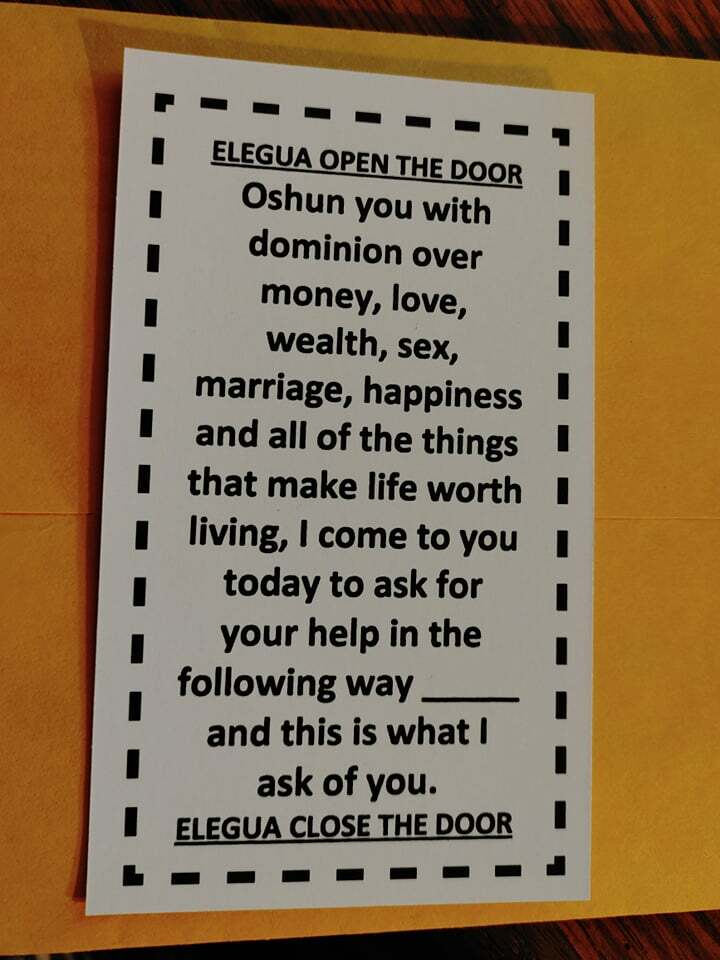 ELEGUA OPEN THE DOOR
Oshun you with
dominion over
money, love,
wealth, sex,
marriage, happiness
and all of the things
that make life worth
living, I come to you
today to ask for
your help in the
following way _____
and this is what I
ask of you.
ELEGUA CLOSE THE DOOR